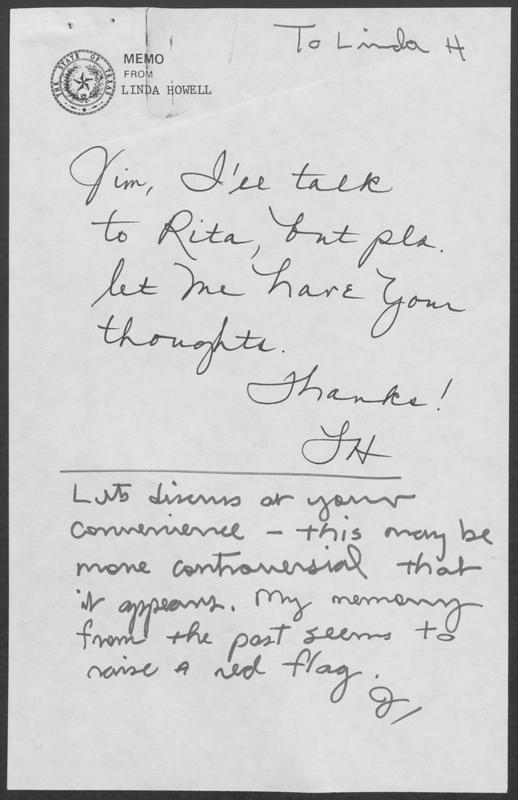 To Linda H
THE STATE OF TEXAS
MEMO
FROM
LINDA HOWELL
Jim, I'll talk
to Rita, but pls.
let me have your
thoughts.
Thanks!
LH
Lets discuss at your
convenience - this may be
more controversial that
it appears. My memory
from the past seems to
raise a red flag.
J/